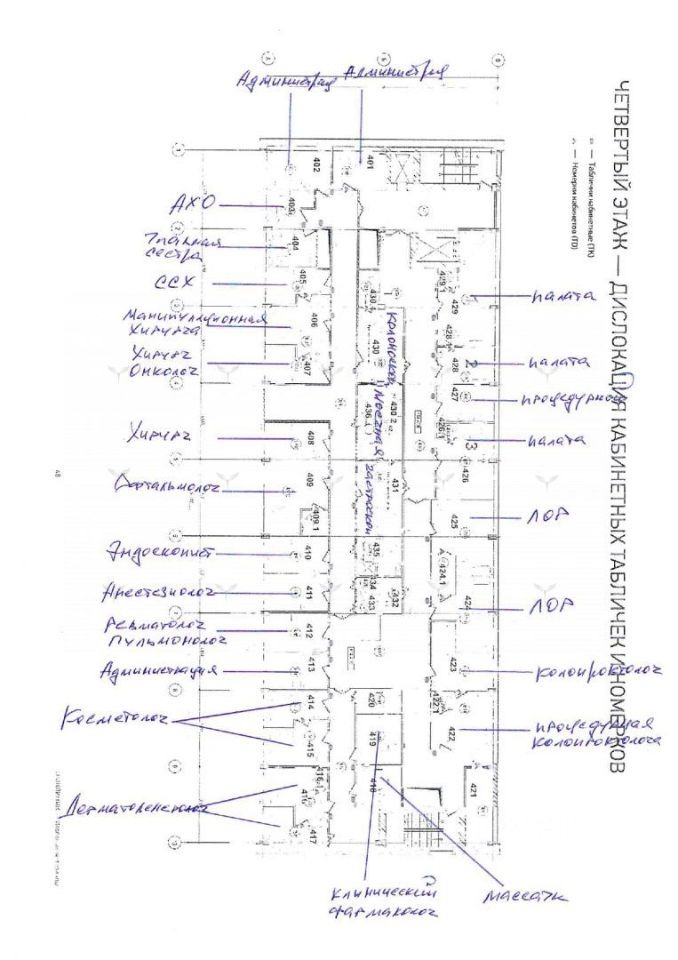 ЧЕТВЕРТЫЙ ЭТАЖ — ДИСЛОКАЦИЯ КАБИНЕТНЫХ ТАБЛИЧЕК И НОМЕРКОВ
— Таблички кабинетные (ТК)
— Номерки кабинетов (ТD)
Администрация
Администрация
402
401
АХО
403
Главная сестра
404
ССХ
405
Манипуляционная
хирурга
406
Хирург
Онколог
407
Хирург
408
Офтальмолог
409
409.1
Эндоскопист
410
Анестезиолог
411
Ревматолог
Пульмонолог
412
Администрация
413
Косметолог
414
415
Дерматовенеролог
416.1
416
417
430
430.2
436.1
431
435
434
433
432
420
419
418
429.1
429
палата
428
2
палата
427
процедурная
426.1
3
палата
426
425
ЛОР
424.1
424
ЛОР
423
колопроктолог
422.1
422
процедурная
колопроктолога
421
клинический
фармаколог
массаж
48